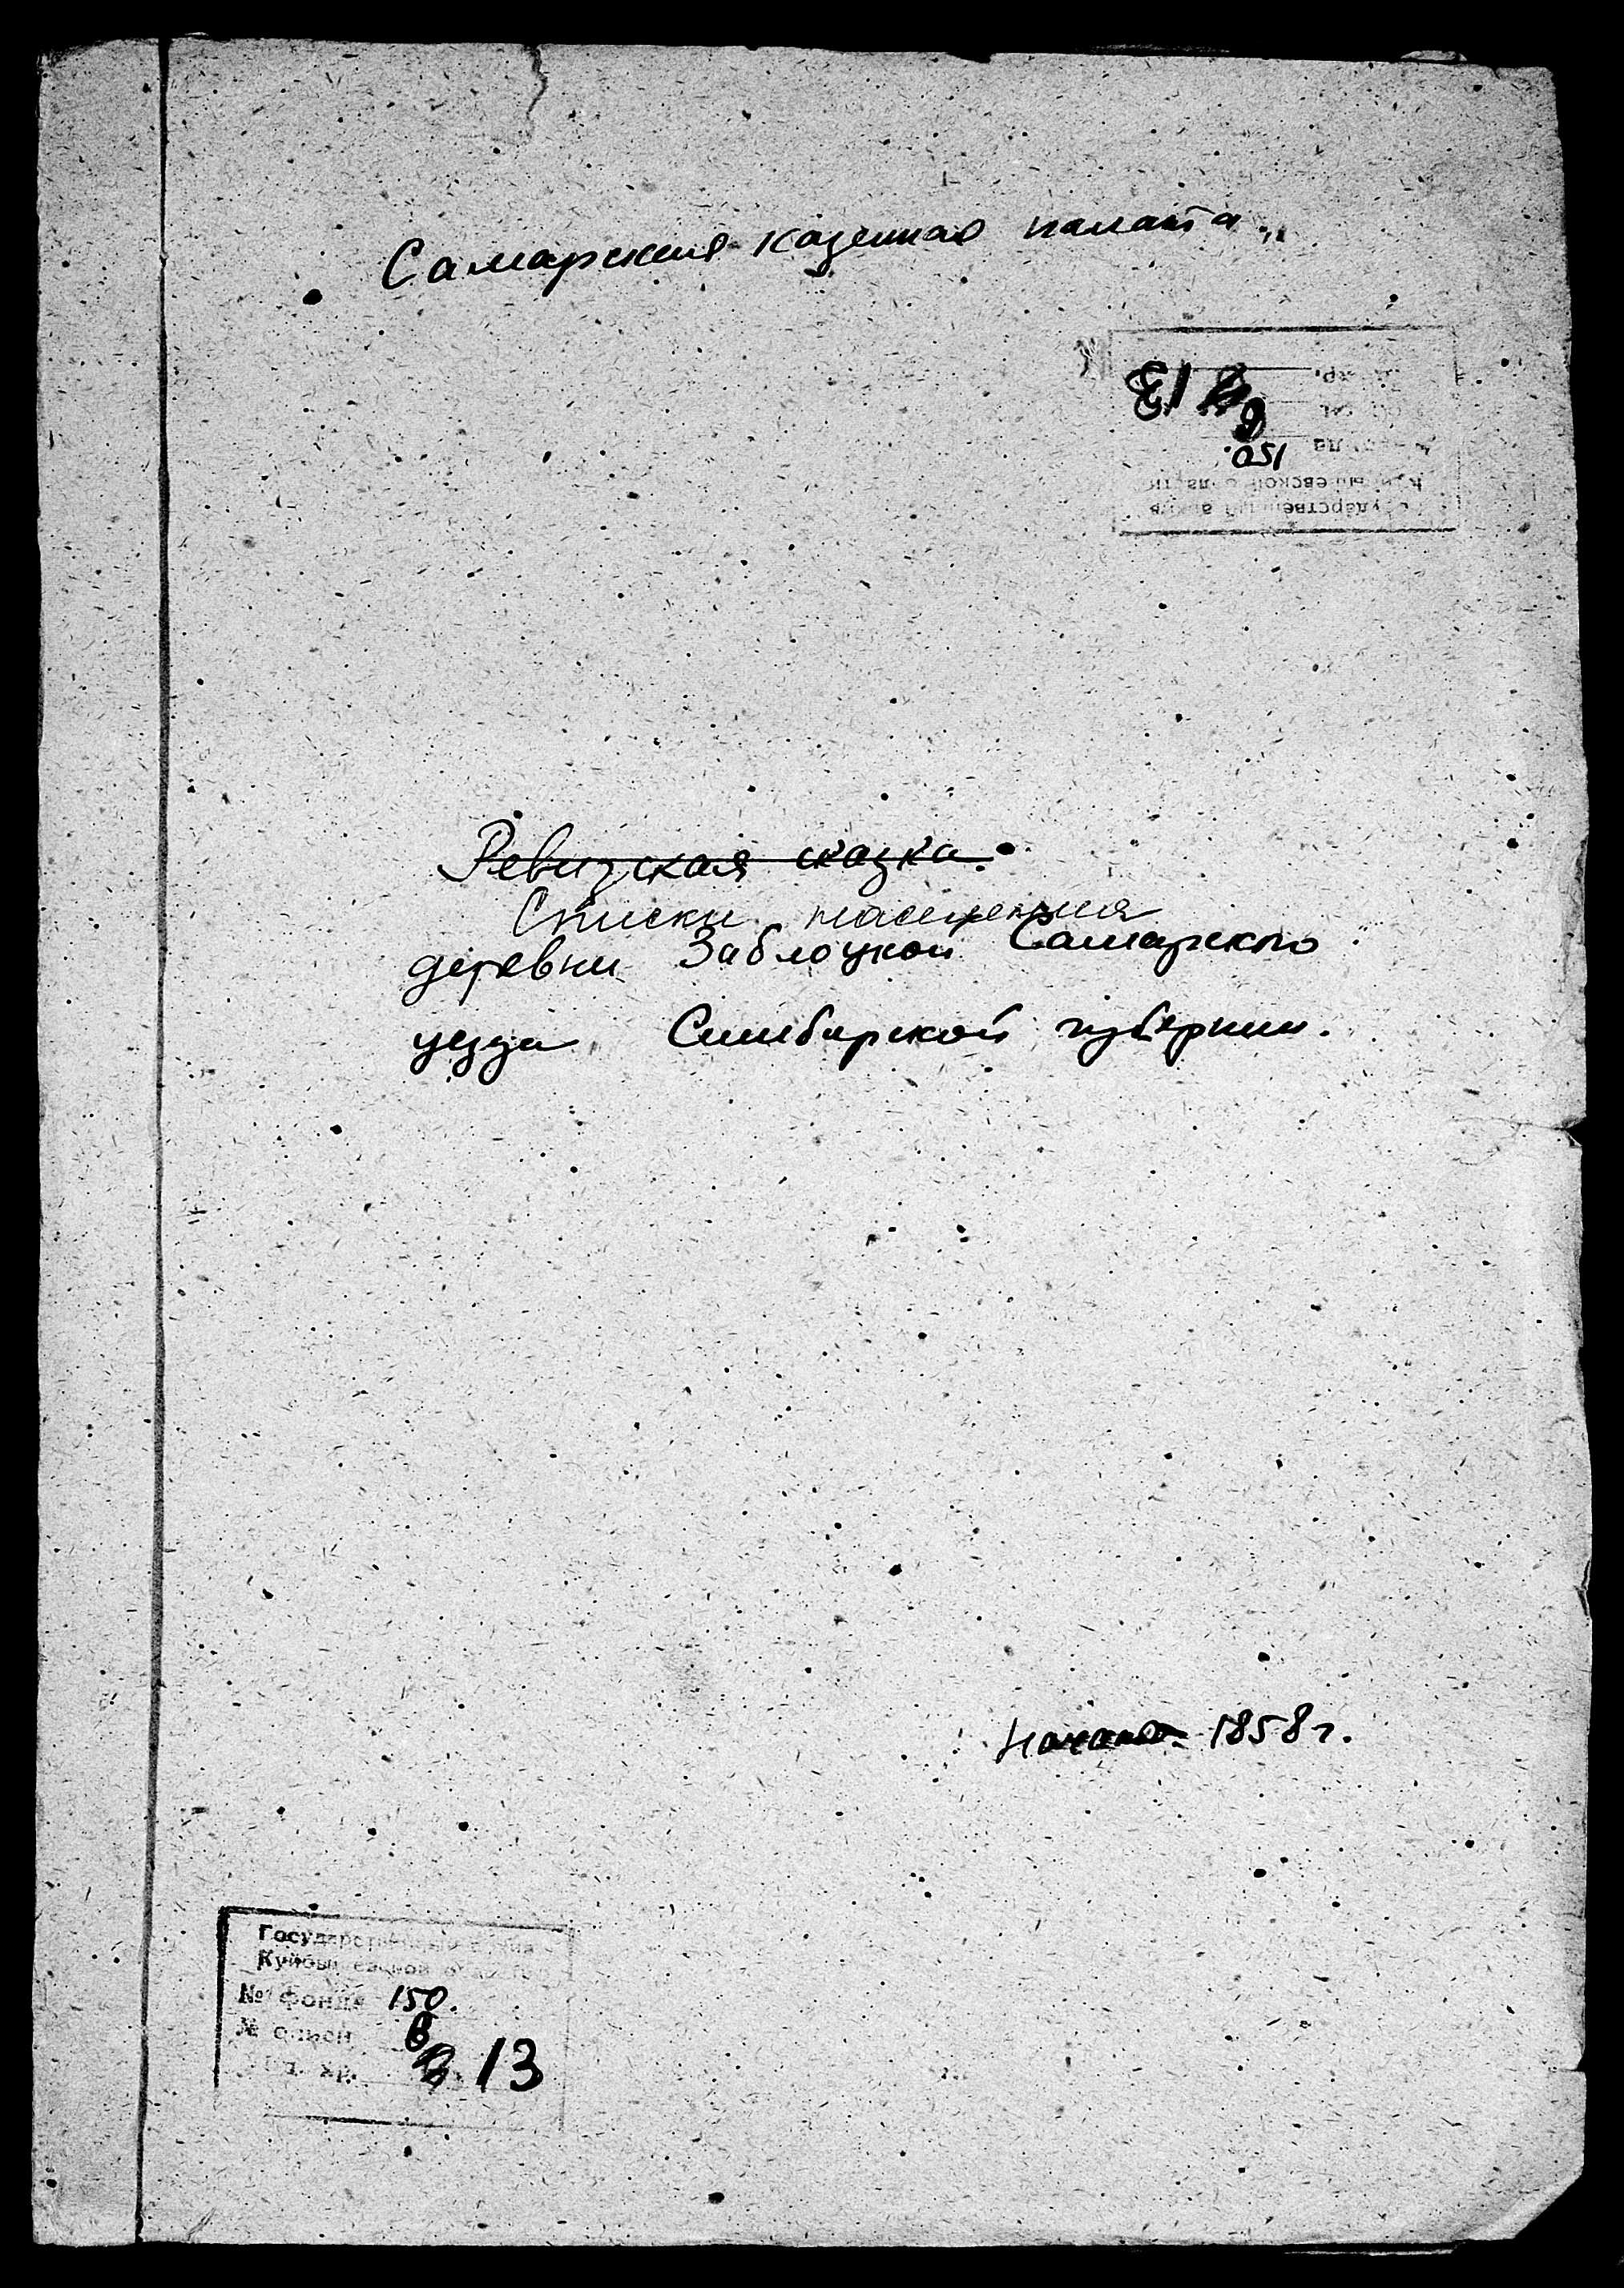 Самарская казенная палата.
Государственный архив
Куйбышевской области
150
13
Ревизская сказка.
Списки населения
деревни Заблоцкой Самарского
уезда Симбирской губернии.
1858 г.
Государственный архив
Куйбышевской области
№ фонда 150.
№ описи 8
Ед. хр. 13